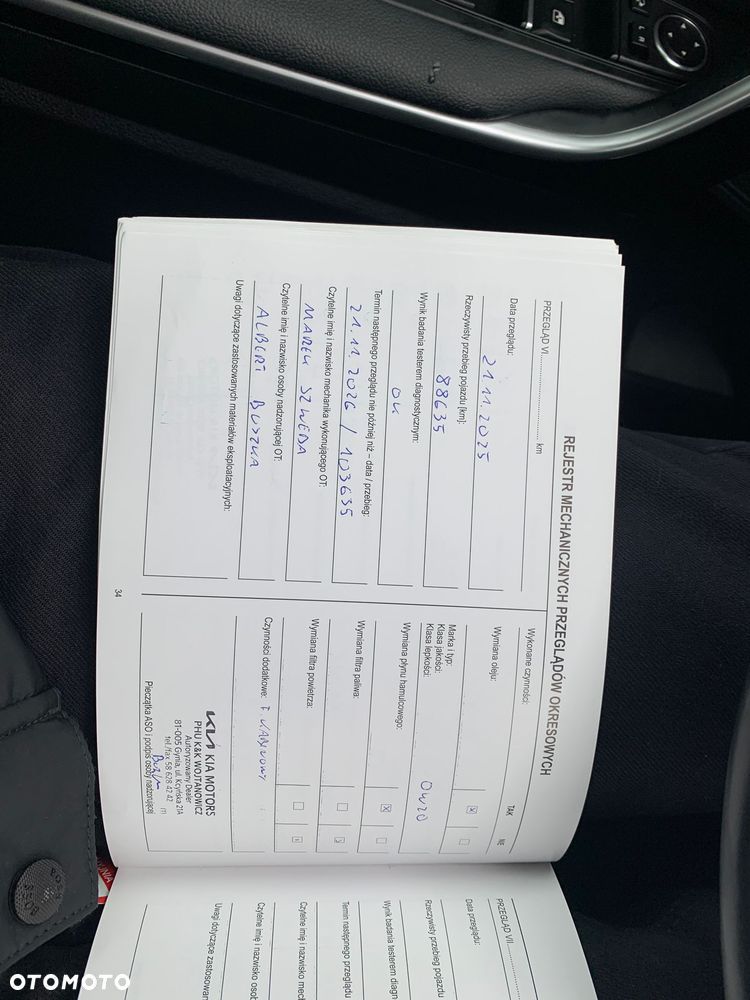 REJESTR MECHANICZNYCH PRZEGLĄDÓW OKRESOWYCH
PRZEGLĄD VI.................................. km
Data przeglądu:
21.11.2025
Rzeczywisty przebieg pojazdu [km]:
88635
Wynik badania testerem diagnostycznym:
OK
Termin następnego przeglądu nie później niż – data / przebieg:
21.11.2026 / 103635
Czytelne imię i nazwisko mechanika wykonującego OT:
MAREK SZWEDA
Czytelne imię i nazwisko osoby nadzorującej OT:
ALBERT BUSZKA
Uwagi dotyczące zastosowanych materiałów eksploatacyjnych:
34
Wykonane czynności:
TAK
NIE
Wymiana oleju:
Marka i typ:
Klasa jakości:
Klasa lepkości:
0W20
Wymiana płynu hamulcowego:
Wymiana filtra paliwa:
Wymiana filtra powietrza:
Czynności dodatkowe: F KABINOWY
KIA KIA MOTORS
PHU K&K WOJTANOWICZ
Autoryzowany Dealer
81-005 Gynia, ul. Kcyńska 21A
tel./fax 58 628 42 42
Pieczątka ASO i podpis osoby nadzorującej
PRZEGLĄD VII
Data przeglądu:
Rzeczywisty przebieg pojazdu
Wynik badania testerem diagn
Termin następnego przeglądu
Czytelne imię i nazwisko mech
Czytelne imię i nazwisko osob
Uwagi dotyczące zastosowan
OTOMOTO